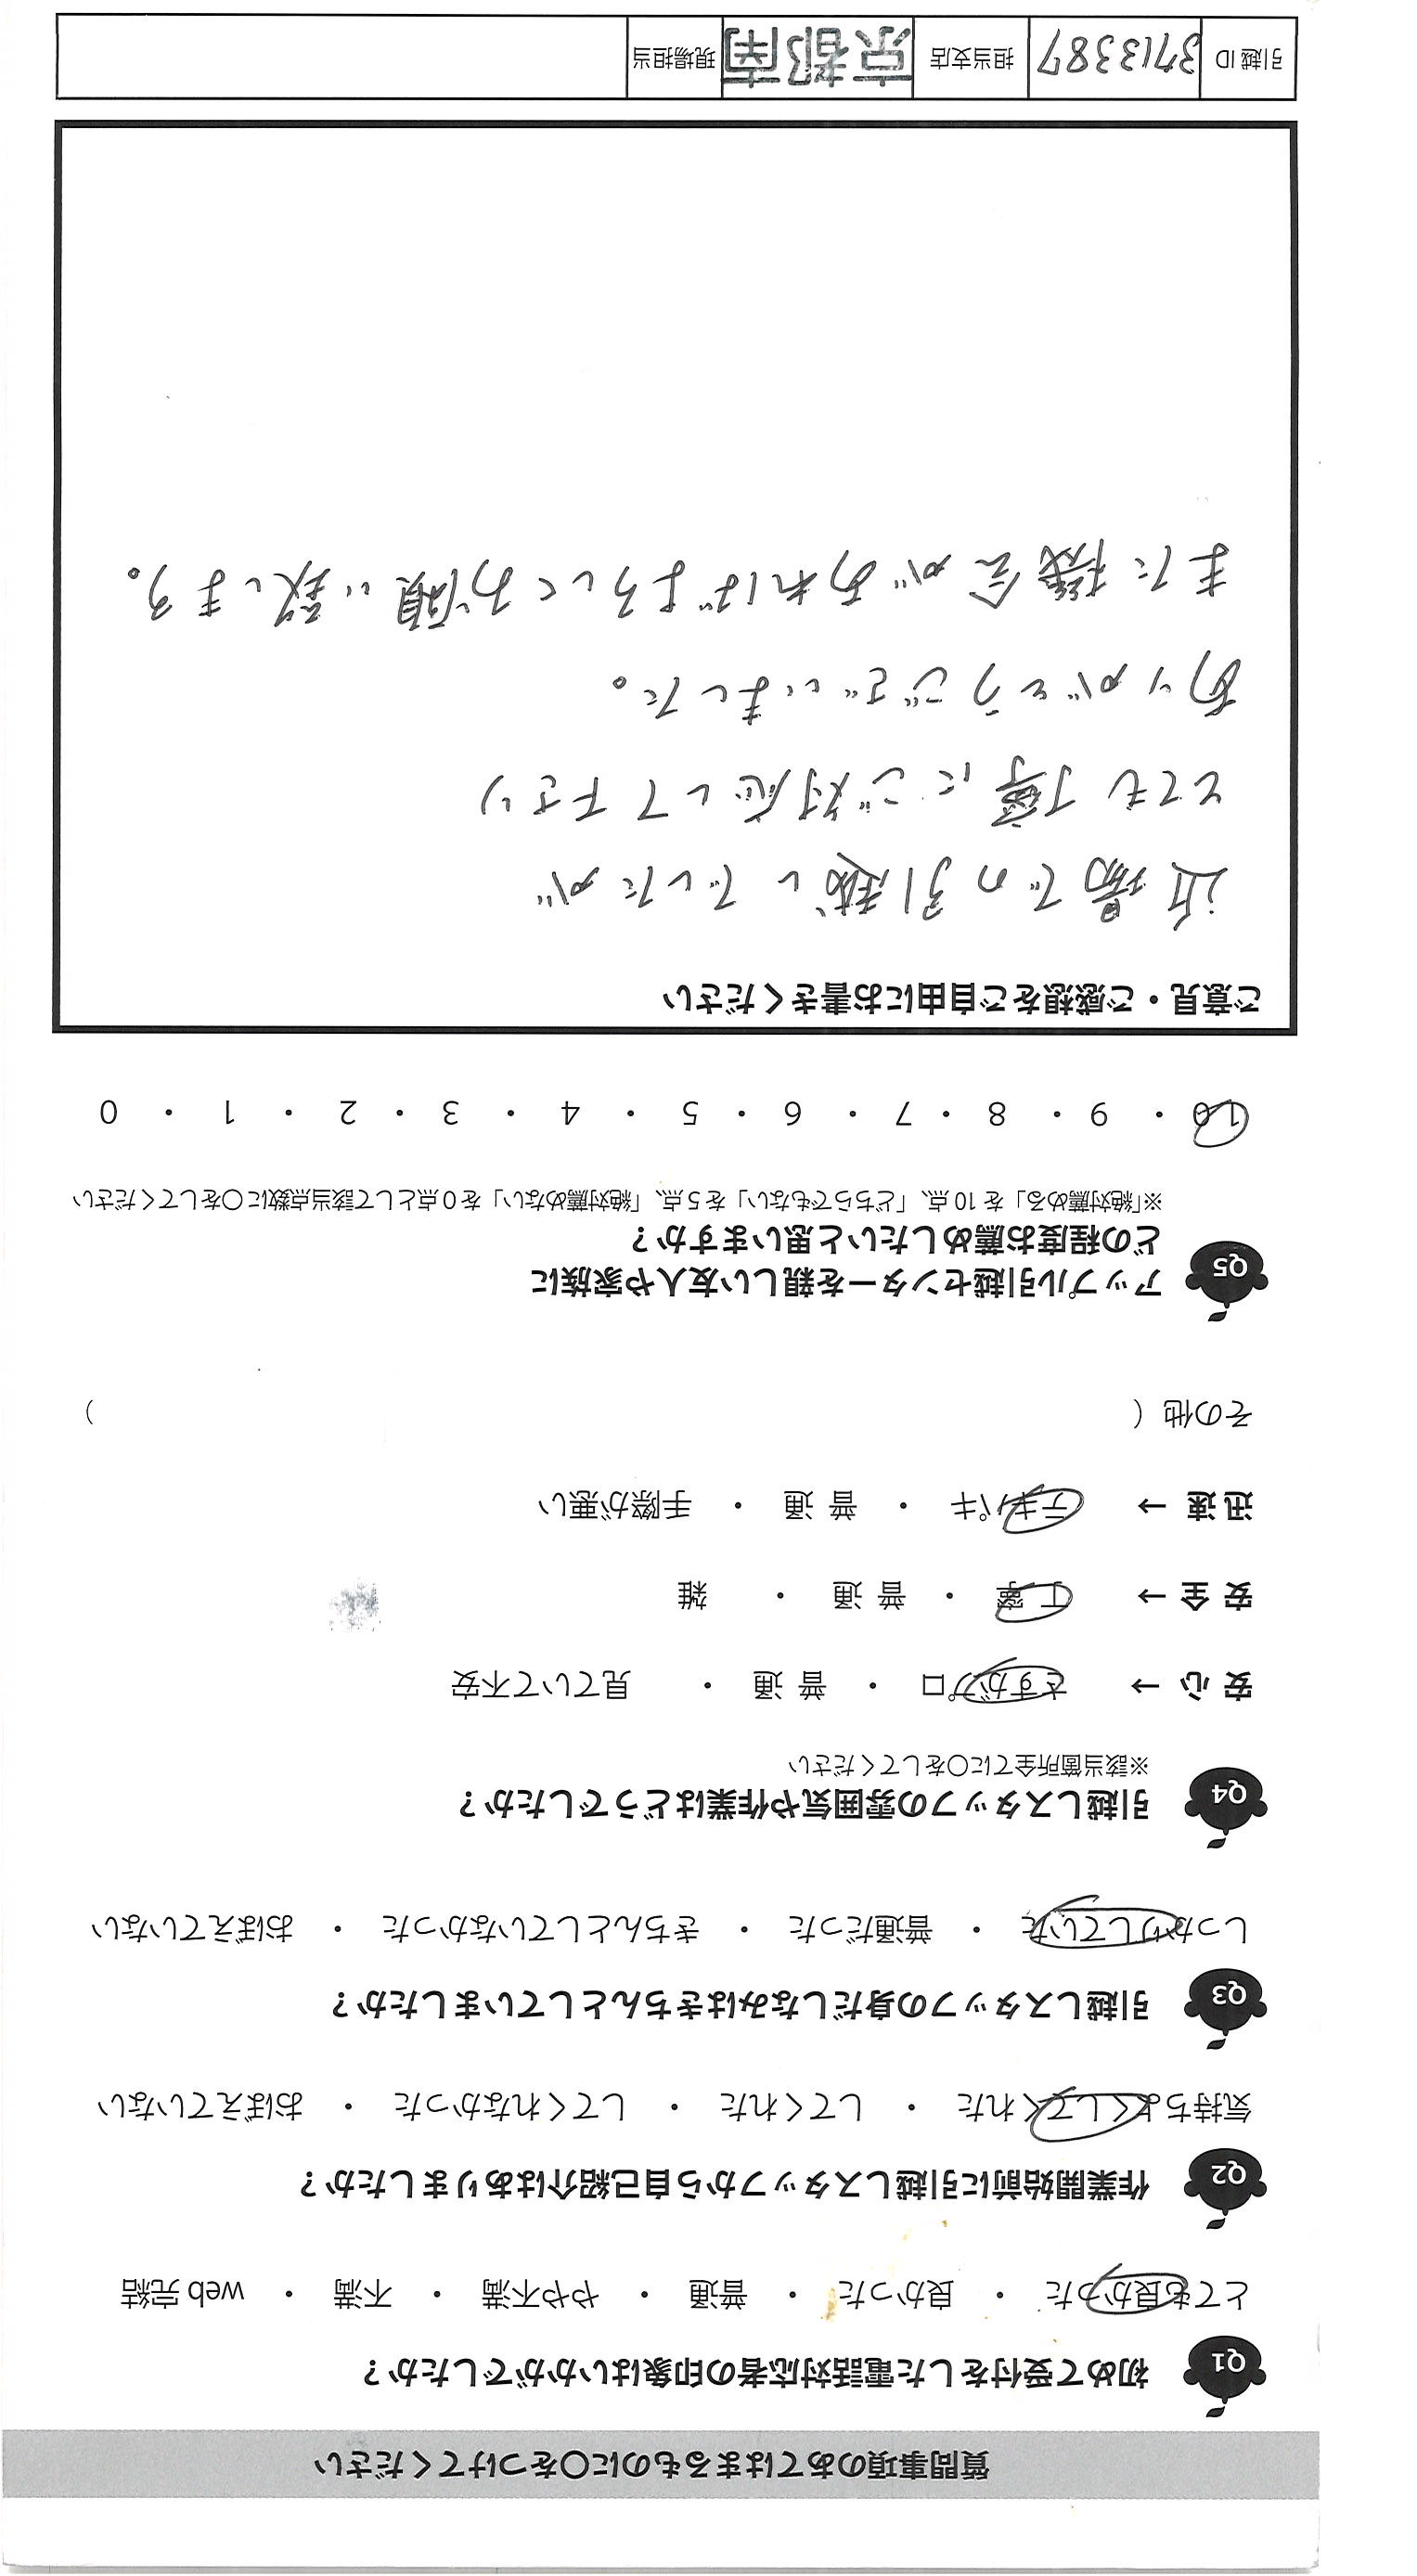 質問事項のあてはまるものに〇をつけてください
Q1 初めて受付をした電話対応者の印象はいかがでしたか？
とても良かった ・ 良かった ・ 普通 ・ やや不満 ・ 不満 ・ web 完結
Q2 作業開始前に引越しスタッフから自己紹介はありましたか？
気持ちよくしてくれた ・ してくれた ・ してくれなかった ・ おぼえていない
Q3 引越しスタッフの身だしなみはきちんとしていましたか？
しっかりしていた ・ 普通だった ・ きちんとしていなかった ・ おぼえていない
Q4 引越しスタッフの雰囲気や作業はどうでしたか？
※該当箇所全てに〇をしてください
安 心 → さすがプロ ・ 普 通 ・ 見ていて不安
安 全 → 丁 寧 ・ 普 通 ・ 雑
迅 速 → テキパキ ・ 普 通 ・ 手際が悪い
その他（ ）
Q5 アップル引越センターを親しい友人や家族に
どの程度お薦めしたいと思いますか？
※「絶対薦める」を 10 点、「どちらでもない」を 5 点、「絶対薦めない」を 0 点として該当点数に〇をしてください
10 ・ 9 ・ 8 ・ 7 ・ 6 ・ 5 ・ 4 ・ 3 ・ 2 ・ 1 ・ 0
ご意見・ご感想をご自由にお書きください
近場での引越しでしたが
とても丁寧にご対応して下さり
ありがとうございました。
また機会があればよろしくお願い致します。
引越 ID 3713387 担当支店 京都南 現場担当